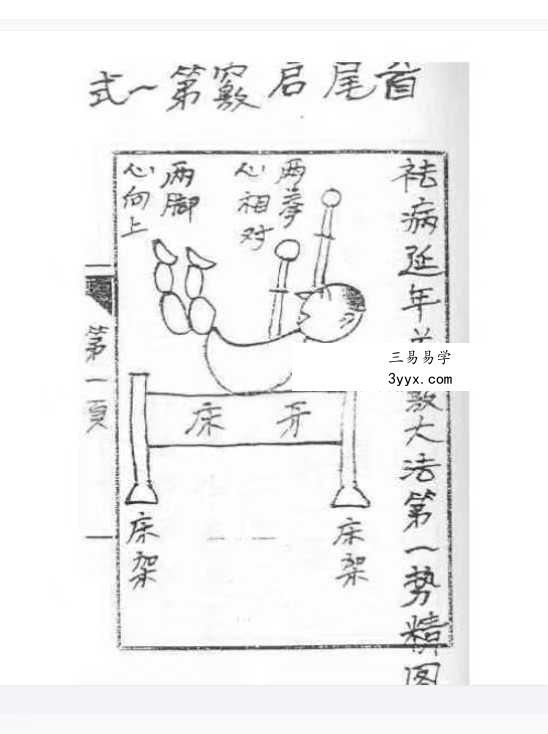 首尾启竅第一式
祛病延年
大法第一势精图
两拳
心相对
两脚
心向上
牙床
床架
床架
第一頁
三易易学
3yyx.com